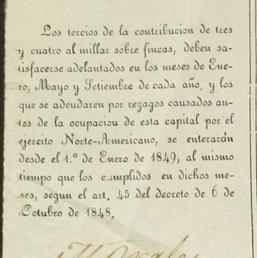 Los tercios de la contribucion de tres
y cuatro al millar sobre fincas, deben sa-
tisfacerse adelantados en los meses de Ene-
ro, Mayo y Setiembre de cada año, y los
que se adeudaren por rezagos causados an-
tes de la ocupacion de esta capital por el
ejército Norte-Americano, se enterarán
desde el 1.º de Enero de 1849, al mismo
tiempo que los cumplidos en dichos me-
ses, segun el art. 45 del decreto de 6 de
Octubre de 1848.